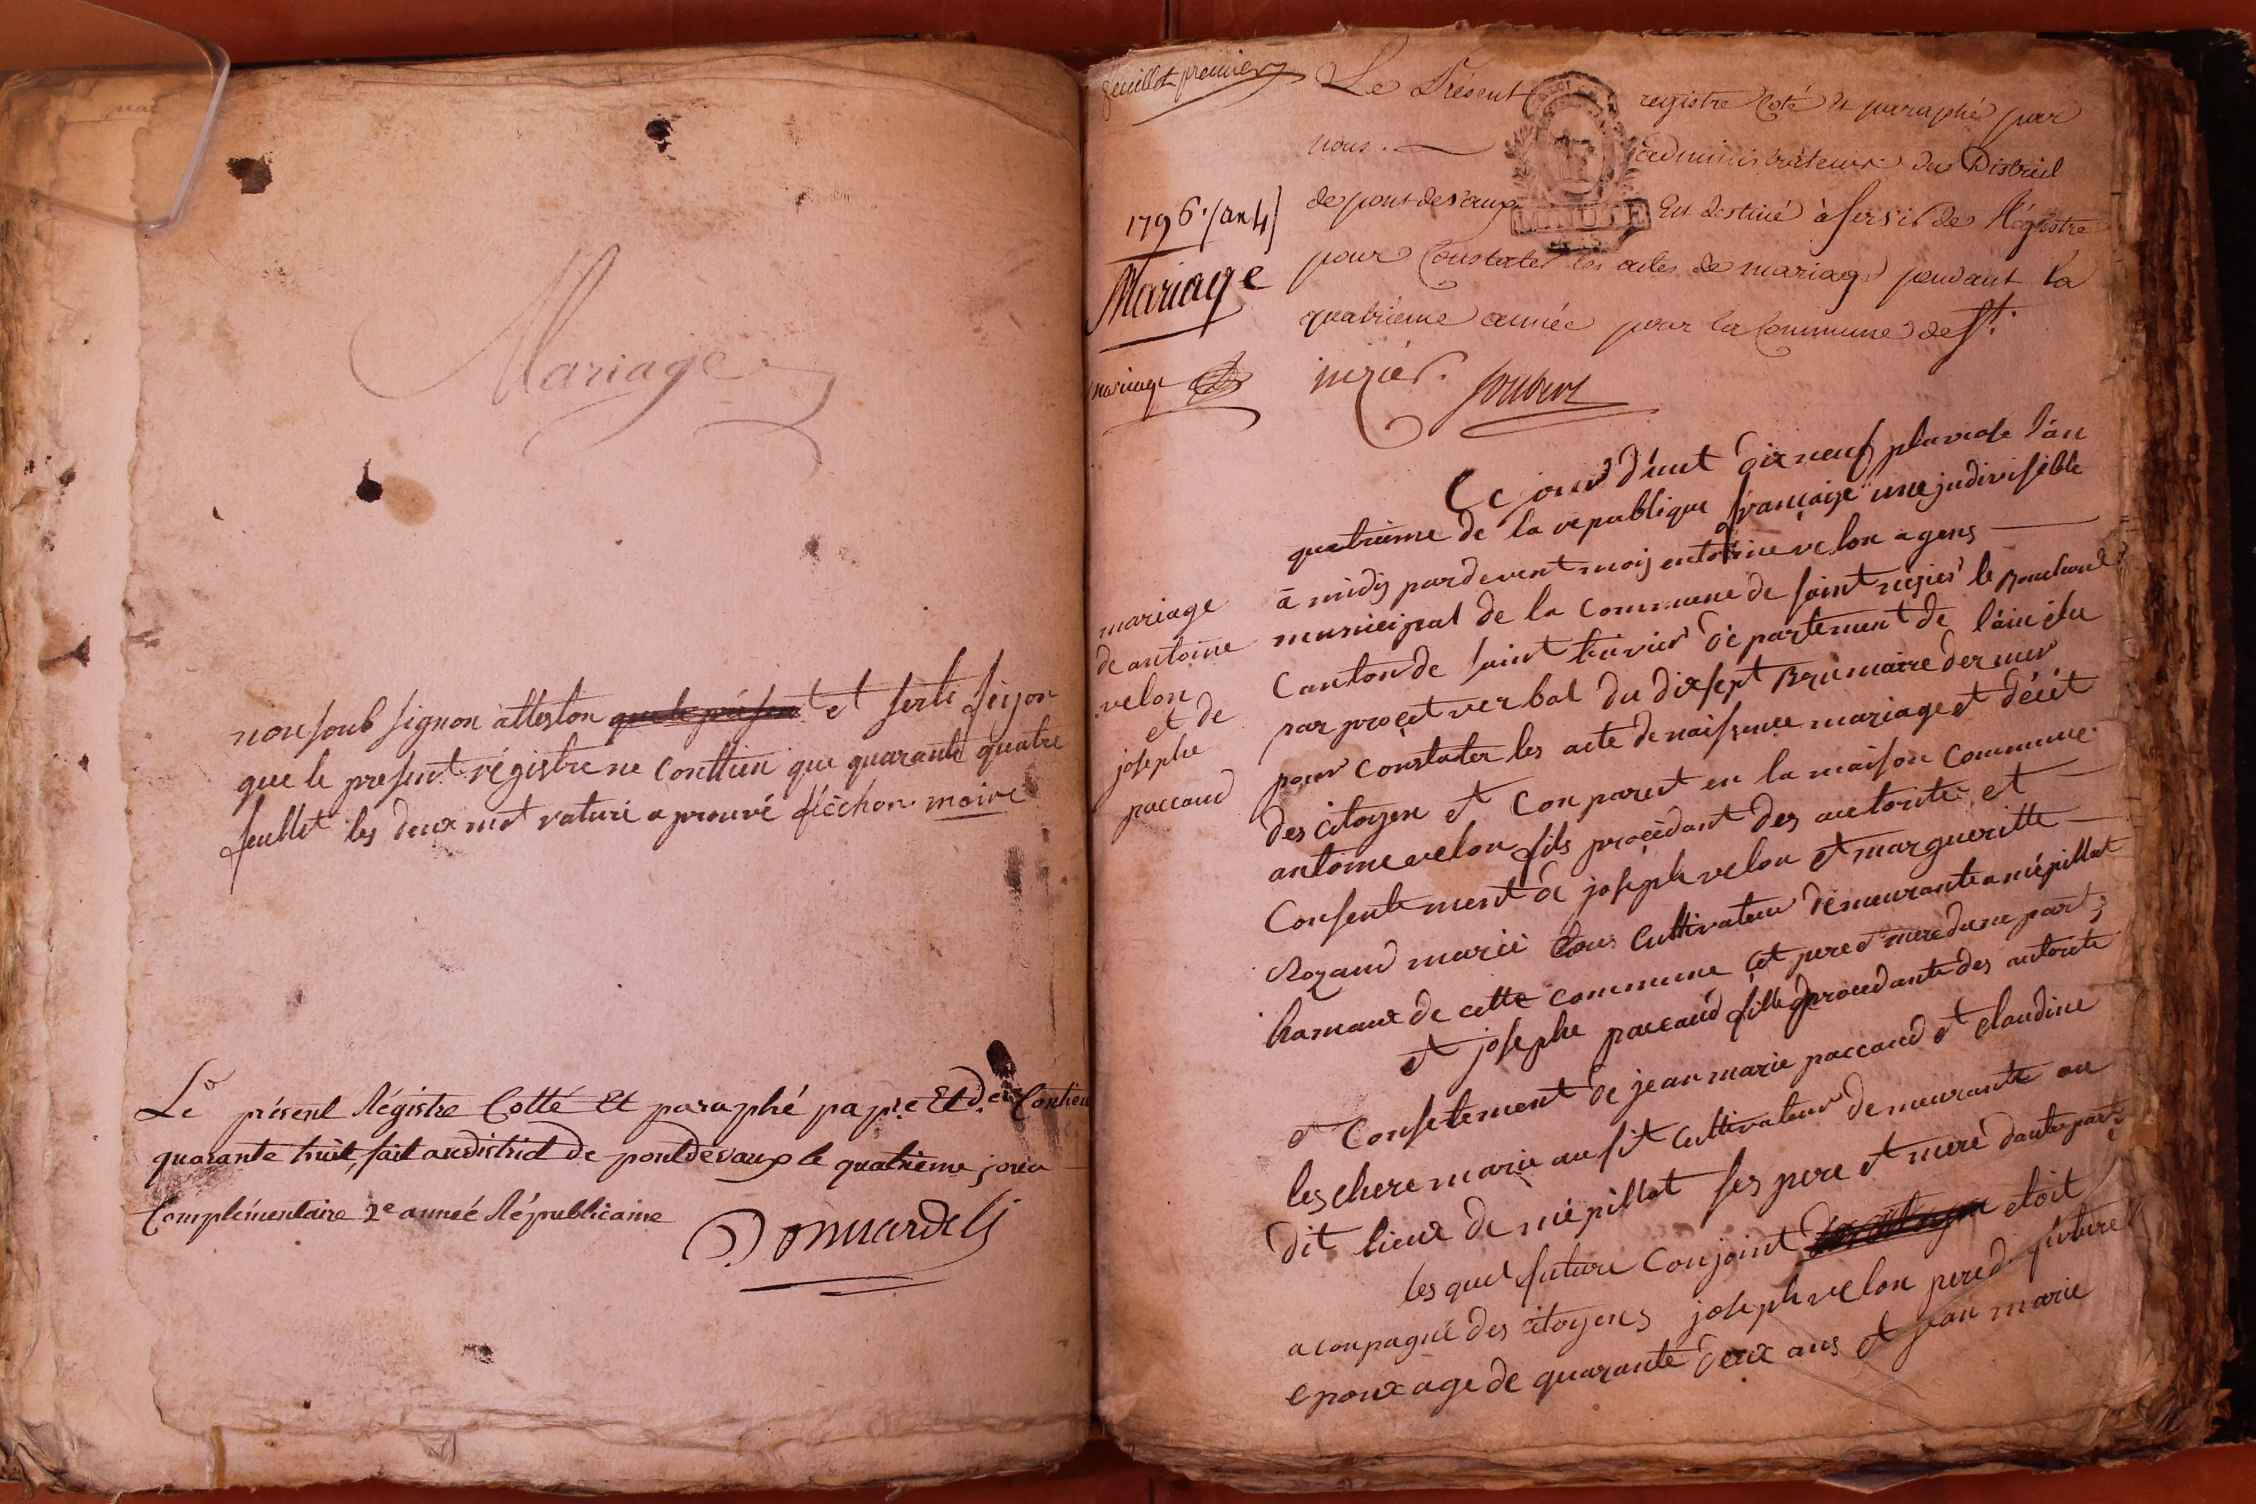 Mariage
nous soub signon atteston que le présent et serti fiyon
que le present régistre ne conttien que quarante quatre
feullet les deux mot raturé a prouvé féchon maire
Le présent Régistre Cotté Et paraphé pa pr.e Et der.e Contien
quarante huit, fait au district de pontdevaux le quatrieme jour
Complémentaire 2e année Républicaine
feuillet premier
1796. (an 4)
Mariage
mariage
Le Présent registre Coté et paraphé par
nous. administrateur du District
de pont de vaux Est destiné à servir de Régistre
pour Constater les actes de mariage pendant la
quatrieme année pour la Commune de St.
nizier.
MINUTE
mariage
de antoine
velon
et de
josephe
paccaud
Ce jourd'huit dix neuf pluviose l'an
quatrieme de la republique françaize une jndivisible
a midy pardevent moy entoine velon agens
municipal de la commune de saint nizier le Bouchoud
Canton de saint trivier département de l'ain élu
par procet verbal du dixsept Brumaire dernier
pour constater les acte de naissence mariage et décét
des citoyen et Conparut en la maison commune
antoine velon fils procédant des autorité et
Consentement de joseph velon et margueritte
Rozand marié tous cultivateur démeurante a niépillat
hamaux de cette commune cet pere et mere dune part;
et josephe paccaud fille procedante des autorité
et Consetement de jean marie paccaud et claudine
leschere marie ausit cultivateur demeurante au
dit lieux de niépillat ses pere et mere dautre part
les quel future conjoint etoit
aconpagné des citoyens joseph velon pere d future
epoux age de quarante deux ans et jean marie